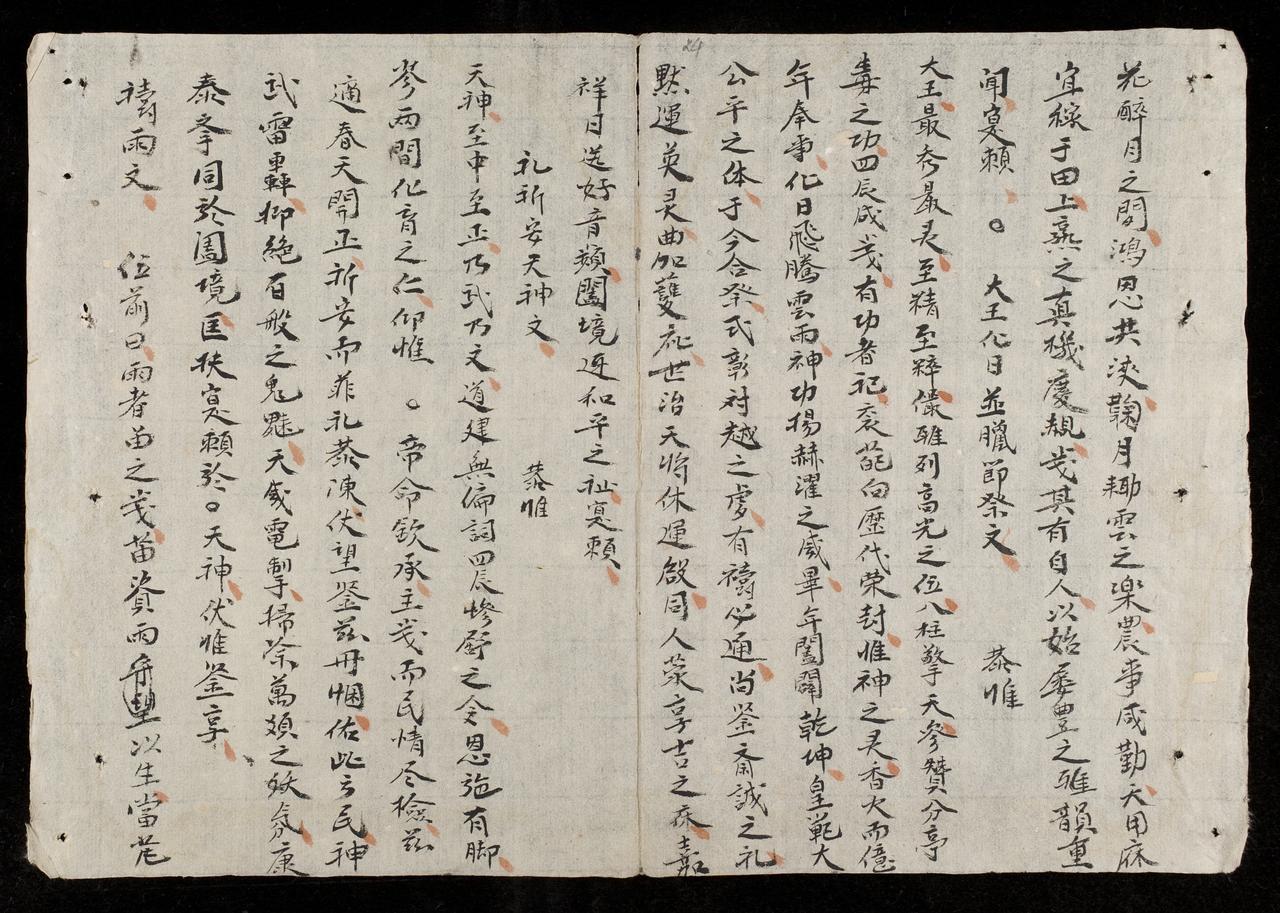 花醉月之間鴻恩共浹鞠月耡雲之楽農事咸勤大田麻
宜綵于田上𤋮之真機慶覩𢧐其有自人以始屡豊之雅韻重
聞寔頼　。　大王化日並臘節祭文　恭惟
大王最秀最灵至精至粹儼雖列高光之位八柱擎天參贊分亭
毒之功四辰成𢧐有功者祀衮葩向歷代荣封惟神之灵香火而億
年奉事化日飛騰雲雨神功揚赫濯之威畢年闔闢乾坤皇範大
公平之体于今合祭式彰対越之虔有禱必通尚鉴斎誠之礼
默運英灵曲加護庇世治天将休運啟同人荣享吉之庥嘉
祥日送好音頻闔境迓和平之祉寔頼
礼祈安天神文　恭惟
天神至中至正乃武乃文道建無偏詞四辰惨舒之令恩施有脚
岑両間化育之仁仰惟　。　帝命欽承主𢧐而民情尽檢茲
適春天開正祈安而菲礼恭陳伏望鉴茲丹悃佑此方民神
武雷轟抑絶百般之鬼魅天威電掣掃除萬頃之妖氛康
泰孚同於闔境匡扶寔頼於。天神伏惟鉴享
禱雨文　位前曰雨者苗之𢧐苗資雨而望以生當茫